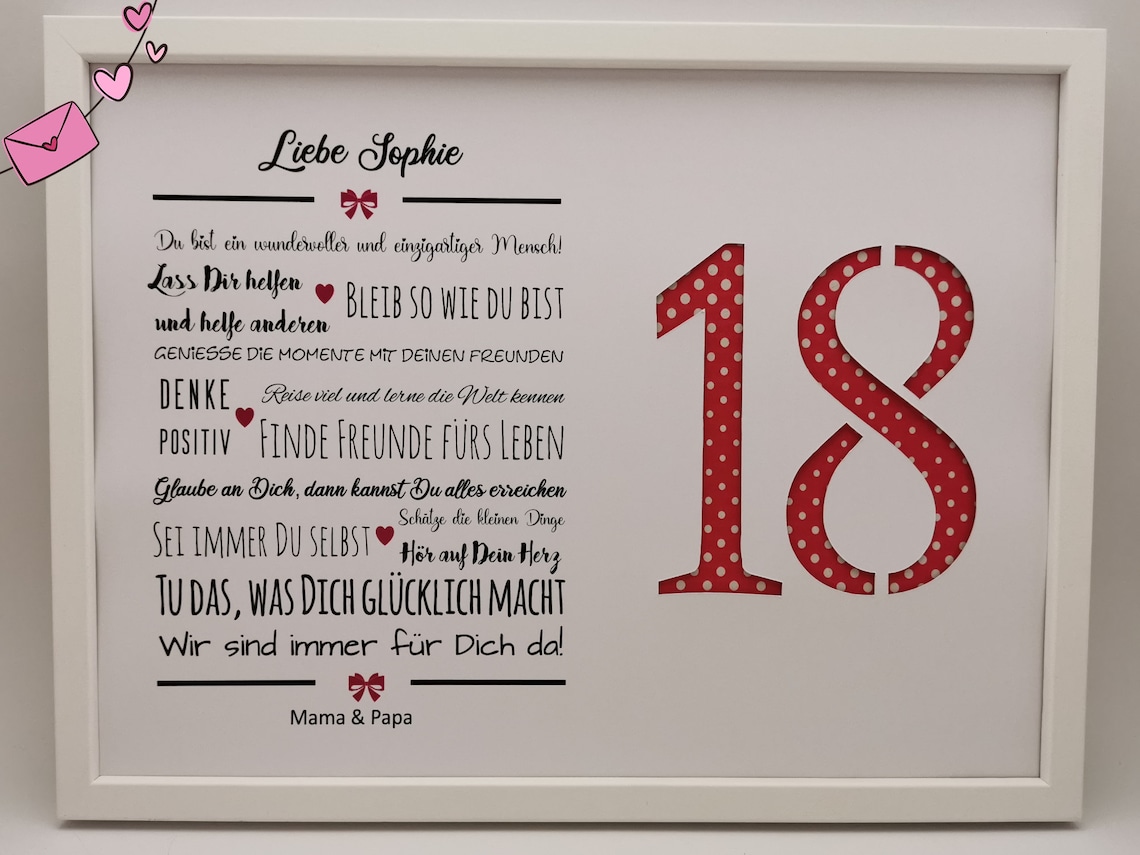 Liebe Sophie
Du bist ein wundervoller und einzigartiger Mensch!
Lass Dir helfen
und helfe anderen
BLEIB SO WIE DU BIST
GENIESSE DIE MOMENTE MIT DEINEN FREUNDEN
DENKE
POSITIV
Reise viel und lerne die Welt kennen
FINDE FREUNDE FÜRS LEBEN
Glaube an Dich, dann kannst Du alles erreichen
SEI IMMER DU SELBST
Schätze die kleinen Dinge
Hör auf Dein Herz
TU DAS, WAS DICH GLÜCKLICH MACHT
Wir sind immer für Dich da!
Mama & Papa
18